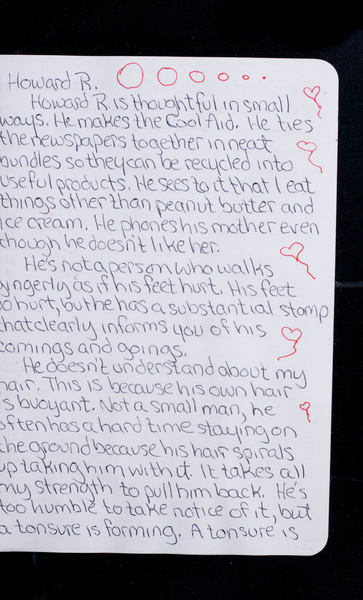 Howard R.
Howard R. is thoughtful in small
ways. He makes the Cool Aid. He ties
the newspapers together in neat
bundles so they can be recycled into
useful products. He sees to it that I eat
things other than peanut butter and
ice cream. He phones his mother even
though he doesn't like her.
He's not a person who walks
gingerly as if his feet hurt. His feet
do hurt, but he has a substantial stomp
that clearly informs you of his
comings and goings.
He doesn't understand about my
hair. This is because his own hair
is buoyant. Not a small man, he
often has a hard time staying on
the ground because his hair spirals
up taking him with it. It takes all
my strength to pull him back. He's
too humble to take notice of it, but
a tonsure is forming. A tonsure is